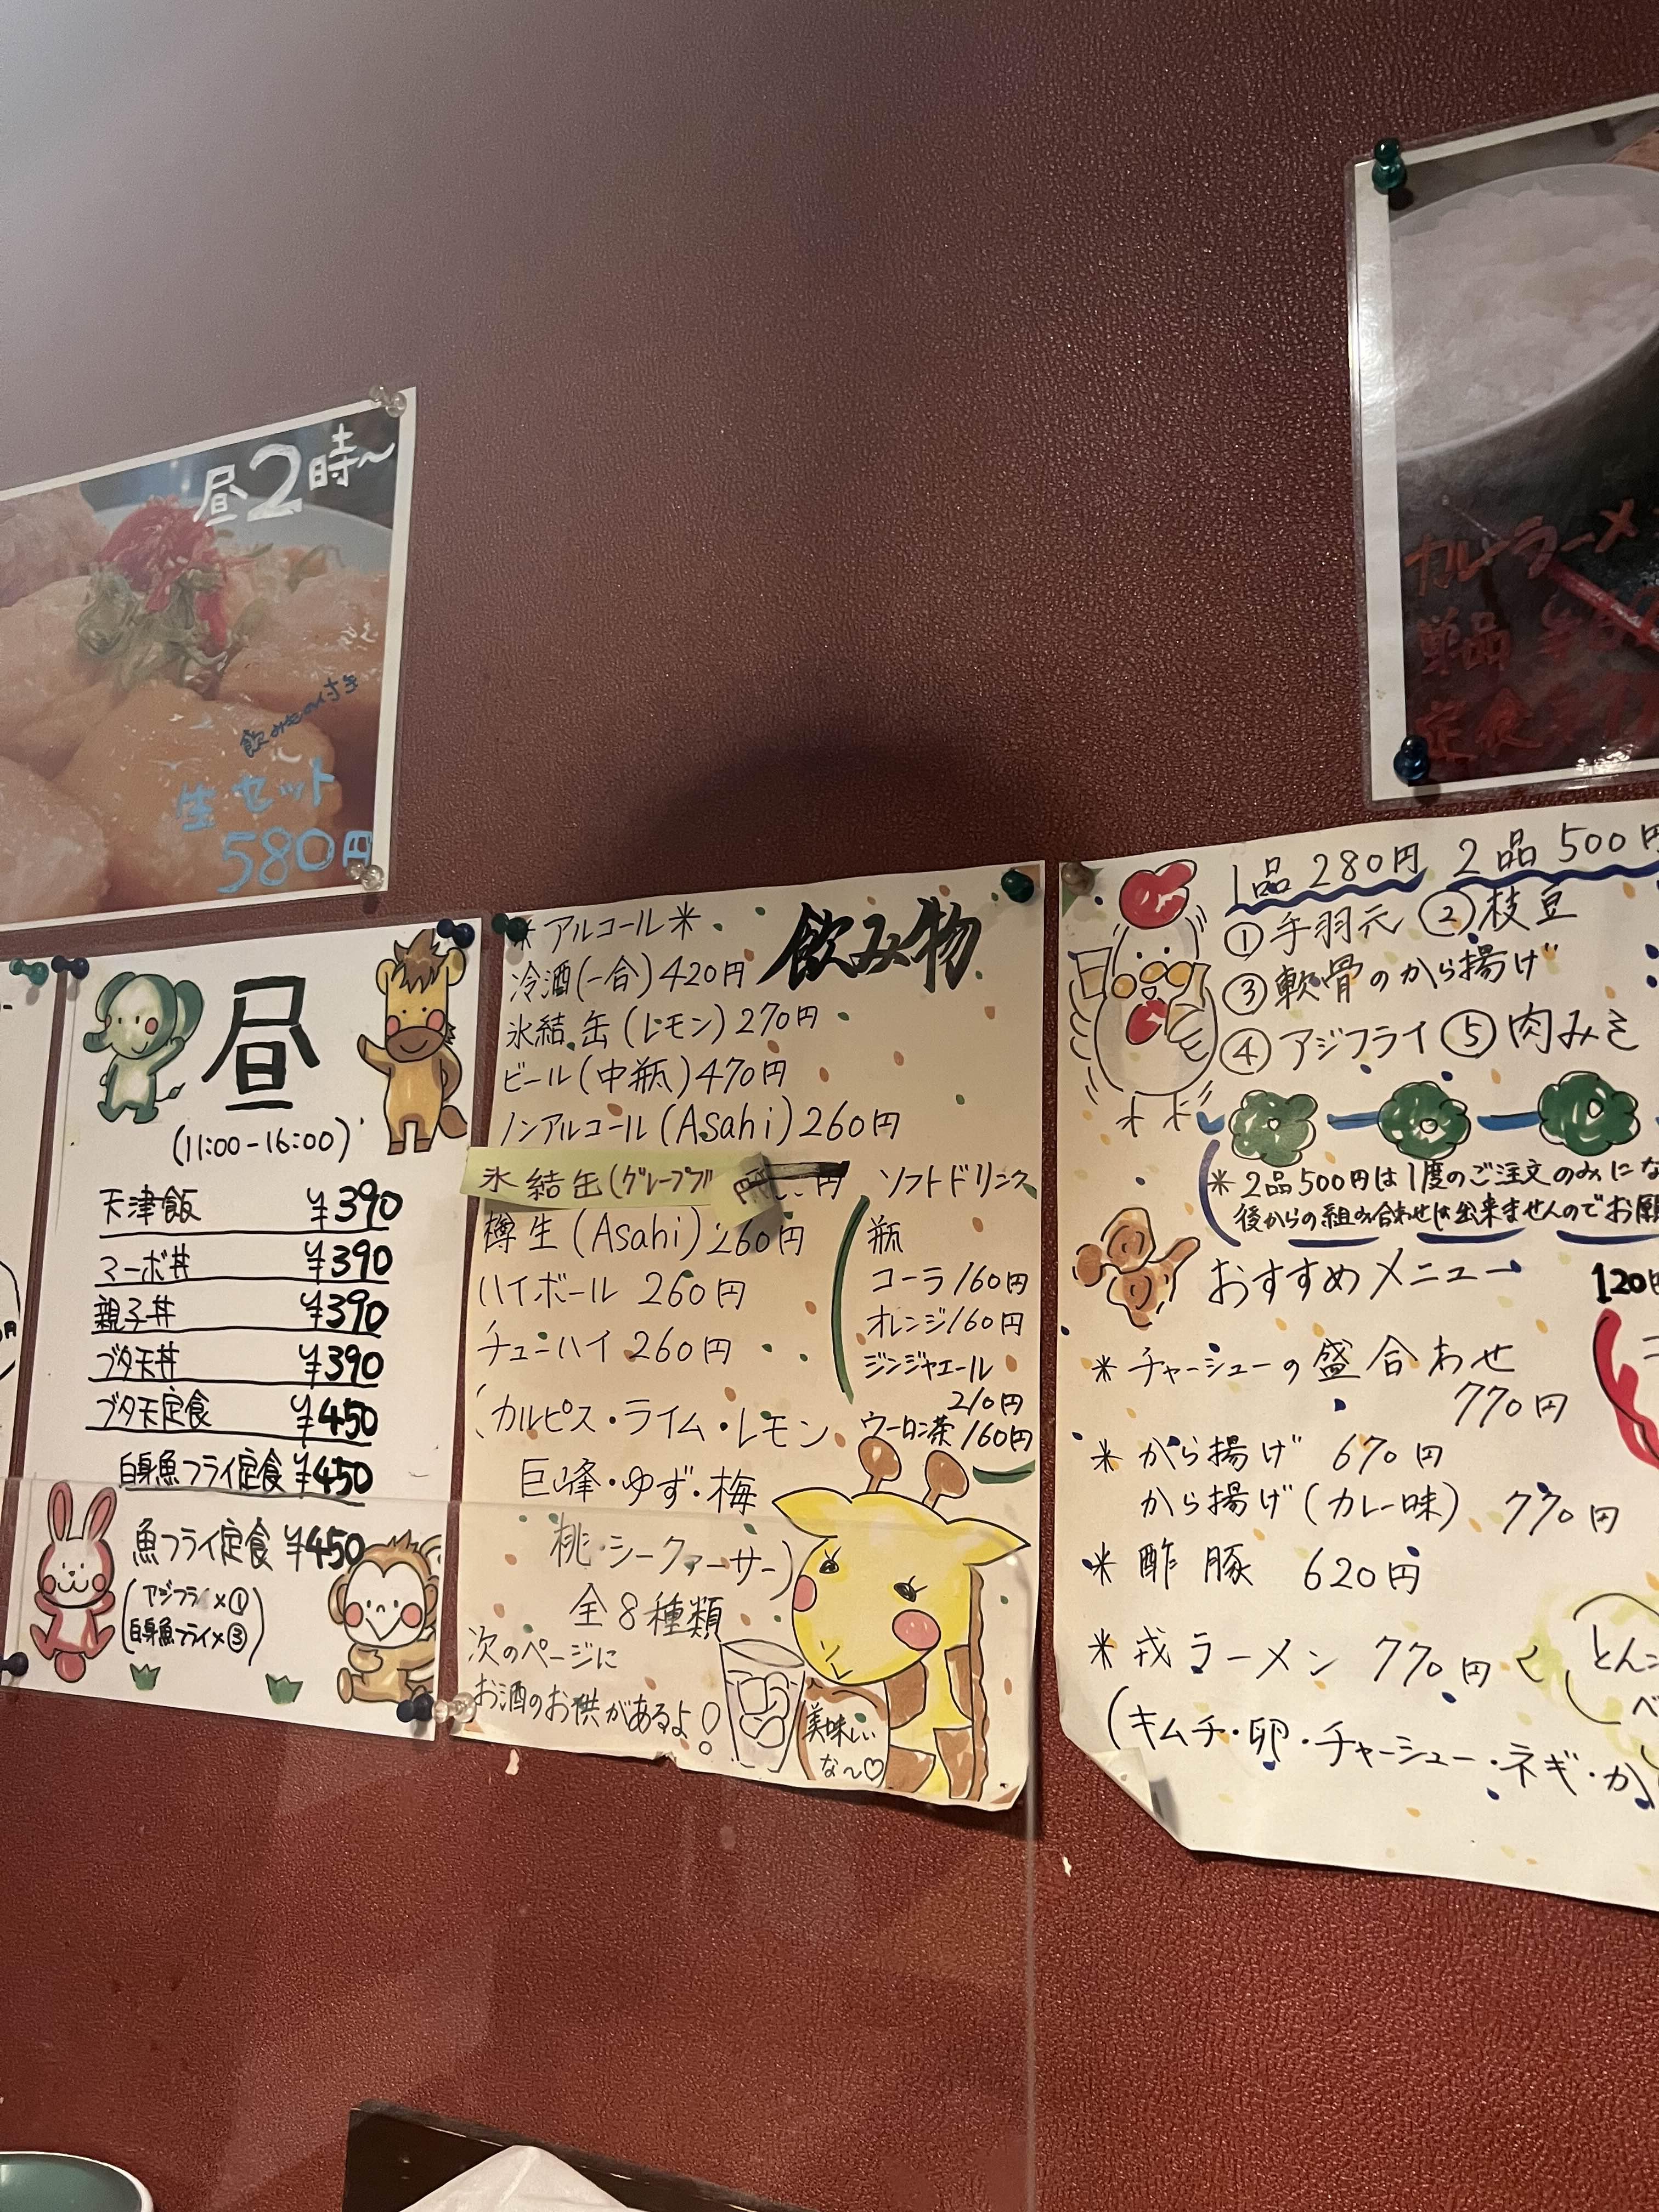 昼2時〜
飲みもの付き
生セット
580円
カレーラーメ
単品
定食
昼
(11:00-16:00)
天津飯 ¥390
マーボ丼 ¥390
親子丼 ¥390
ブタ天丼 ¥390
ブタ天定食 ¥450
白身魚フライ定食 ¥450
魚フライ定食 ¥450
(アジフライ×①
白身魚フライ×③)
飲み物
＊アルコール＊
冷酒(一合)420円
氷結缶(レモン)270円
ビール(中瓶)470円
ノンアルコール(Asahi)260円
氷結缶(グレープフ 円
樽生(Asahi)260円
ハイボール 260円
チューハイ 260円
(カルピス・ライム・レモン
巨峰・ゆず・梅
桃・シークァーサー)
全8種類
次のページに
お酒のお供があるよ!
美味しい
な〜♡
ソフトドリンク
瓶
コーラ160円
オレンジ160円
ジンジャエール
210円
ウーロン茶160円
1品 280円 2品 500円
①手羽元 ②枝豆
③軟骨のから揚げ
④アジフライ ⑤肉みそ
＊2品500円は1度のご注文のみにな
後からの組み合わせは出来ませんのでお願
おすすめメニュー
120円
＊チャーシューの盛合わせ
770円
＊から揚げ 670円
から揚げ(カレー味) 770円
＊酢豚 620円
＊戎ラーメン 770円
とんこ
ベ
(キムチ・卵・チャーシュー・ネギ・か